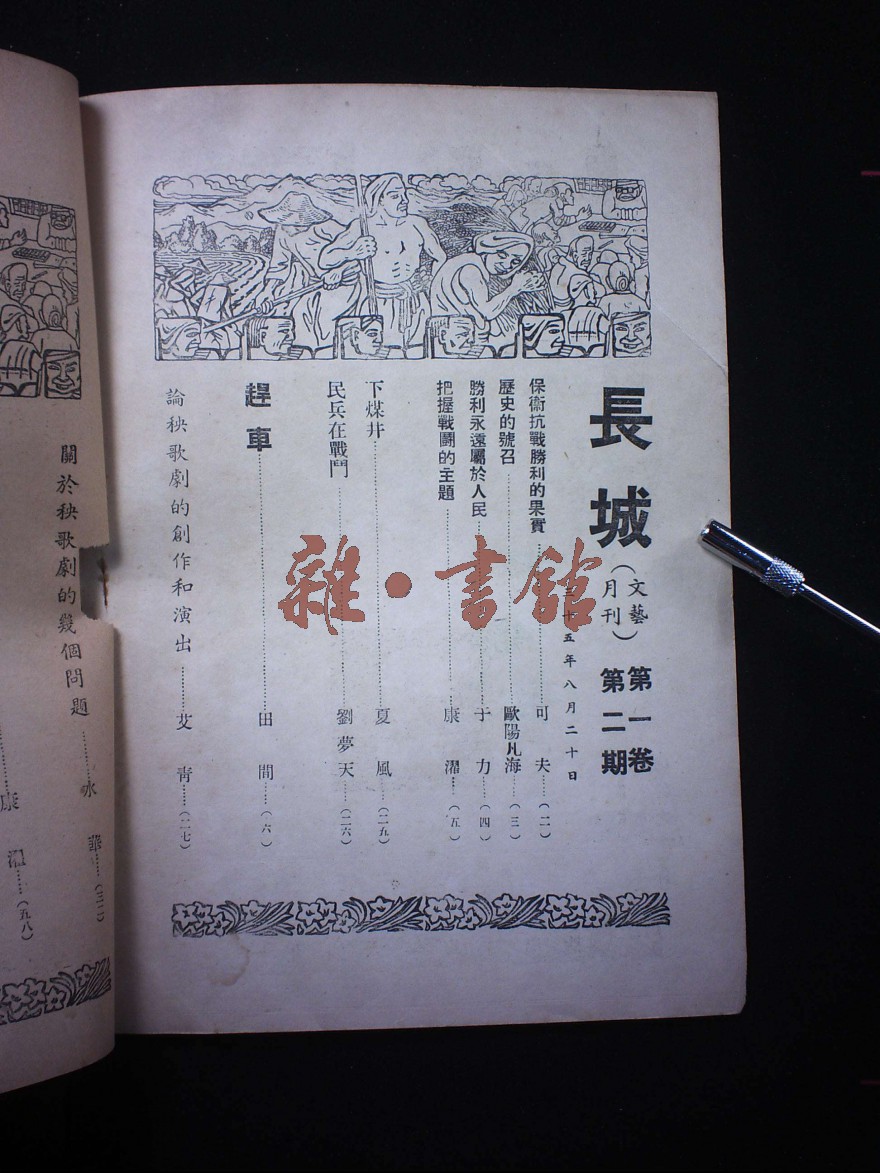 長城（文藝月刊）第一卷第二期
三十五年八月二十日
保衞抗戰勝利的果實……可夫……（二）
歷史的號召……歐陽凡海……（三）
勝利永遠屬於人民……于力……（四）
把握戰鬪的主題……康濯……（五）
下煤井……夏風……（二五）
民兵在戰鬥……劉夢天……（二六）
趕車……田間……（六）
論秧歌劇的創作和演出……艾青……（二七）
關於秧歌劇的幾個問題……水華……（三二）
康濯……（五八）
雜·書館